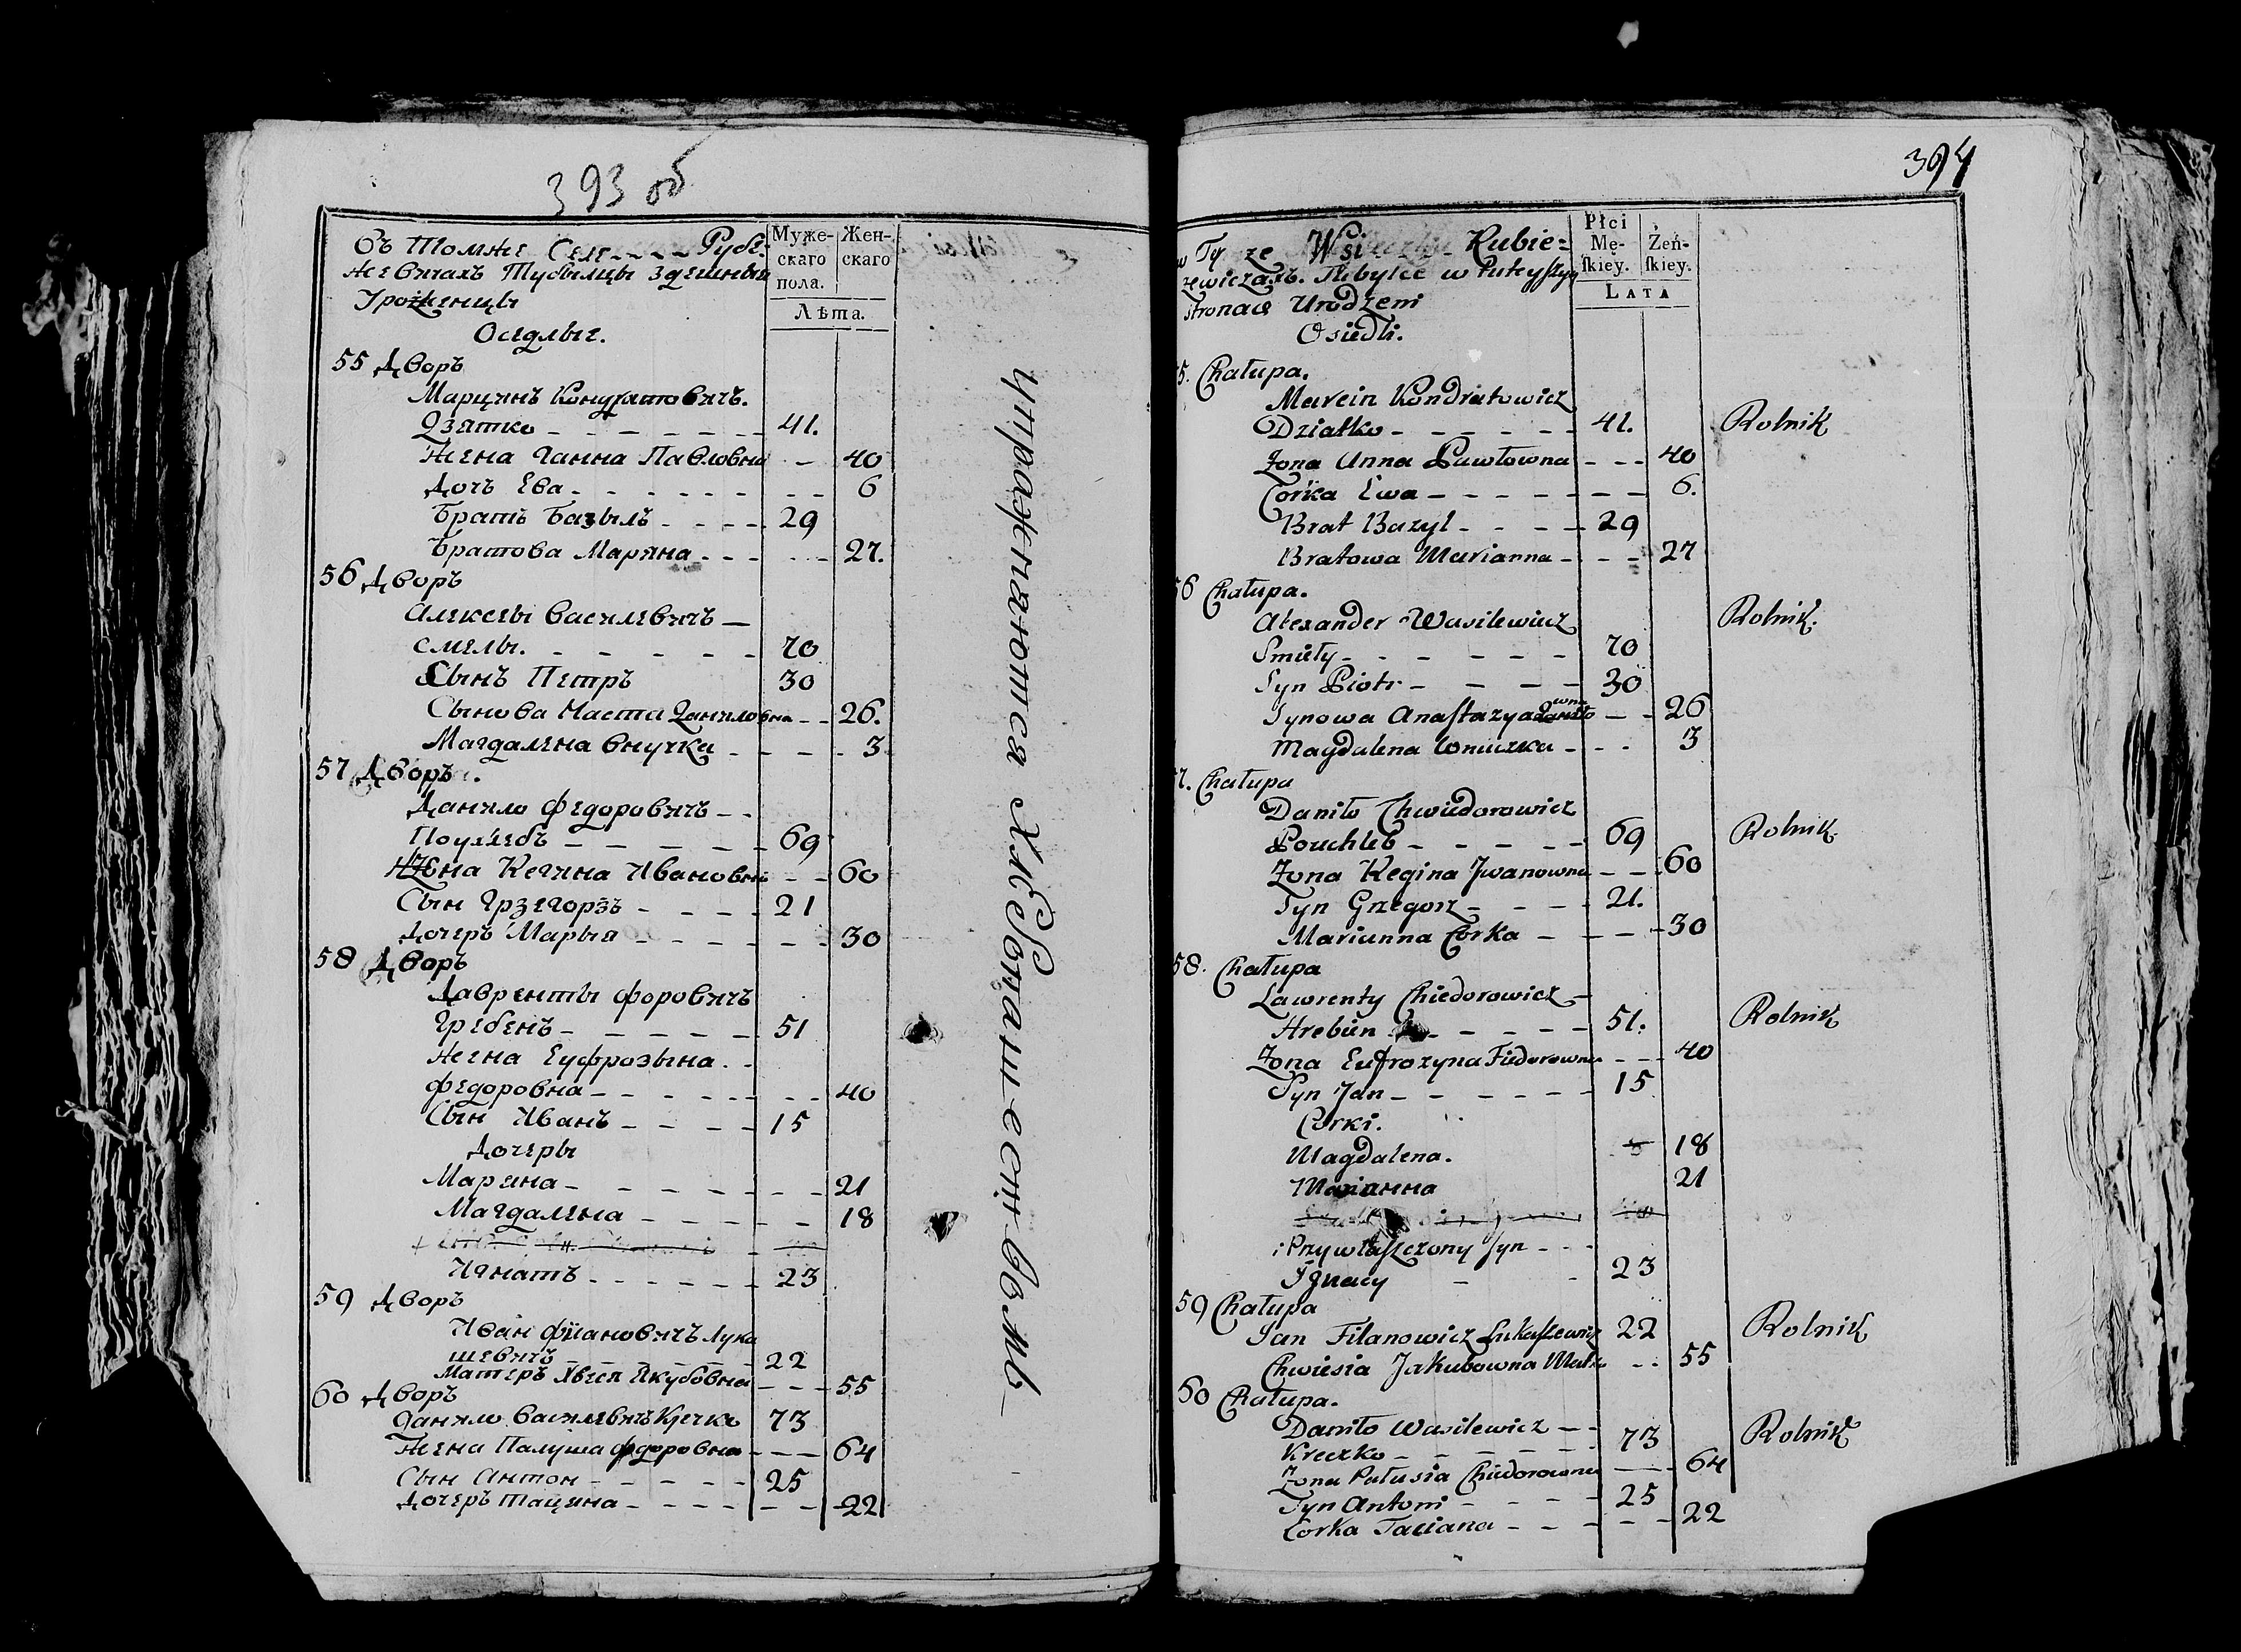 393 об
Въ томже Селе Рубе-
жевичахъ Тубылцы здешныя
Урожненцы
Оседлые.
Муже-
скаго
пола.
Жен-
скаго
Лѣта.
55 Дворъ
Марцинъ Кондратовичъ.
Дзятко - - - 41.
Жена Ганна Павловна - - 40
Дочъ Ева - - - 6
Братъ Базылъ - - - 29
Братова Маряна - - - 27.
56 Дворъ
Алексеы Василевичъ —
Смелы. - - - 70
Сынъ Петръ 30
Сынова Наста Даниловна - - 26.
Магдалена Внучка - - - 3
57 Дворъ.
Данило Федоровичъ - -
Поухлебъ - - - 69
Жена Регина Ивановна - - 60
Сын Грзегорзъ - - - 21
Дочеръ Марыя - - - 30
58 Дворъ
Лавренты Форовичъ
Гребенъ - - - 51
Жена Еуфрозына - -
Федоровна - - - 40
Сын Иванъ - - - 15
Дочеры
Марина - - - 21
Магдалена - - - 18
Игнатъ - - - 23
59 Дворъ
Иван Фиіановичъ Лука
шевичъ - - - 22
Матеръ Хвеся Якубовна - - - 55
60 Дворъ
Данило Василевичъ Кречко 73
Жена Палуша Федоровна - - - 64
Сын Антон - - - 25
Дочеръ Тацяна - - - 22
Упражняются Хлебопашествомъ
394
w Ty ze Wsi Rubie=
zewiczach. Tubylce w Tuteyszych
stronach Urodzeni
Osiedli.
Płci
Mę-
skiey.
Żeń-
skiey.
LATA
5. Chałupa.
Marcin Kondratowicz
Dziatko - - - 41. Rolnik
Zona Anna Pawłowna - - - 40
Corka Ewa - - - 6.
Brat Bazyl - - - 29
Bratowa Marianna - - - 27
56 Chałupa.
Alexander Wasilewicz Rolnik.
Smiely - - - 70
Syn Piotr - - - 30
Synowa Anastazya Daniłowna - - 26
Magdalena Wniuczka - - - 3
7. Chałupa
Daniło Chwiedorowicz
Pouchleb - - - 69 Rolnik.
Zona Regina Jwanowna - - - 60
Syn Grzegorz - - - 21.
Marianna Corka - - - 30
58. Chałupa
Lawrenty Chiedorowicz —
Hrebien - - - 51. Rolnik
Zona Eufrozyna Fiedorowna - - - 40
Syn Jan - - - 15
Corki.
Magdalena. 18
Marianna 21
i Przywłaszczony syn - - -
Jgnacy - - 23
59 Chałupa
Jan Filanowicz Lukaszewicz 22 Rolnik
Chwiesia Jakubowna Matka - - 55
60 Chałupa.
Daniło Wasilewicz - -
Kreczko - - - 73 Rolnik
Zona Palusia Chiedorowna - - 64
Syn Antoni - - - 25
Corka Taciana - - - 22